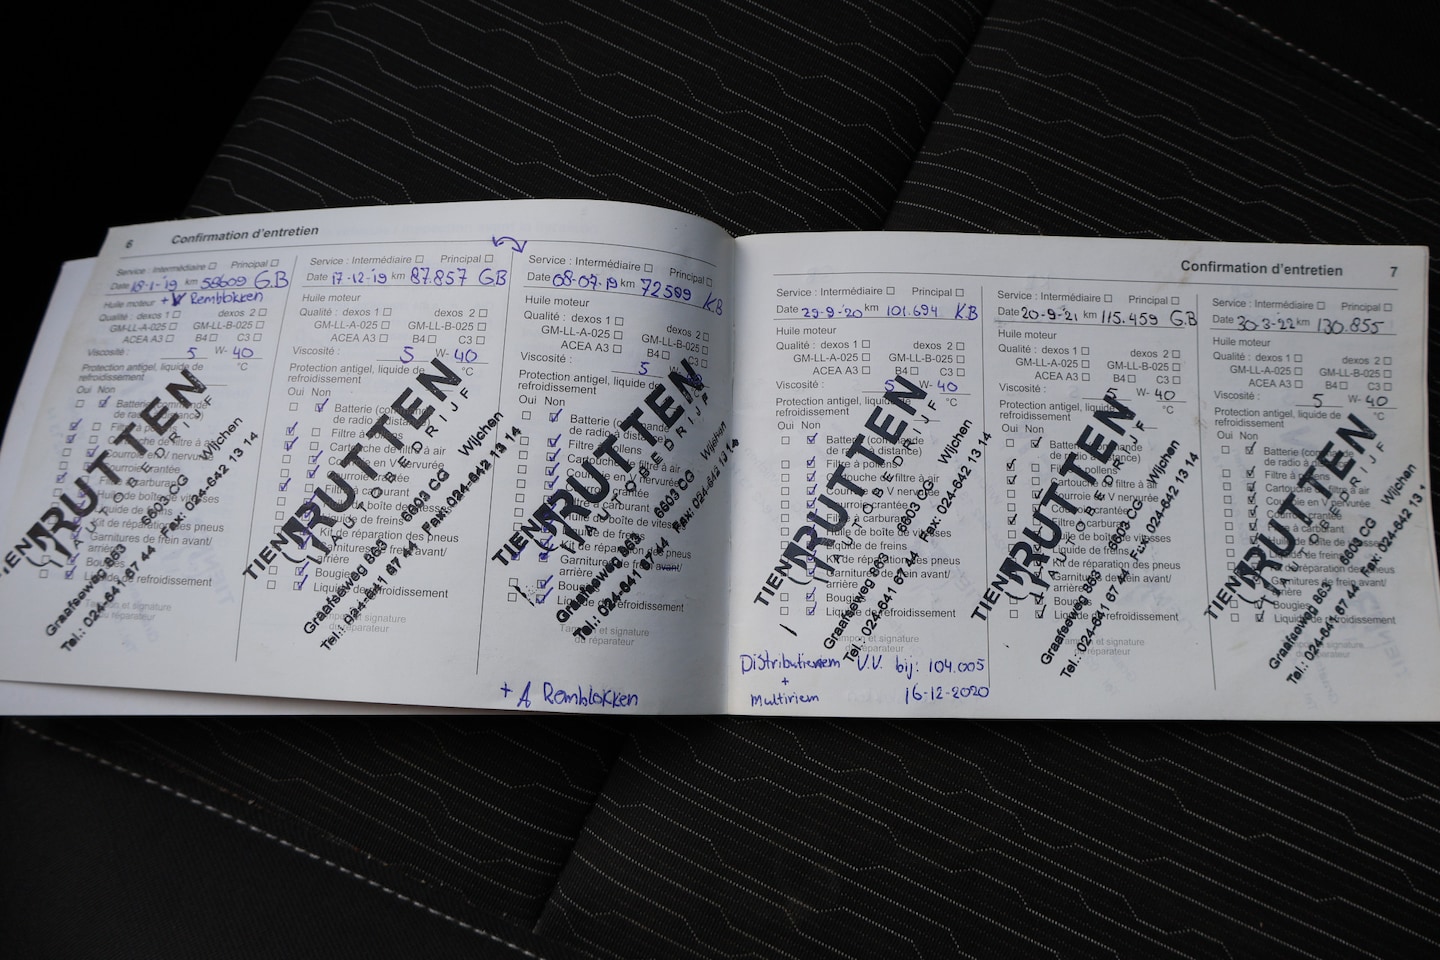 6 Confirmation d'entretien
Service : Intermédiaire Principal
Date 18-1-'19 km 58609 G.B
Huile moteur + Remblokken
Qualité : dexos 1 dexos 2
GM-LL-A-025 GM-LL-B-025
ACEA A3 B4 C3
Viscosité : 5 W- 40
Protection antigel, liquide de
refroidissement °C
Oui Non
Batterie (commande
de radio à distance)
Filtre à pollens
Cartouche de filtre à air
Courroie en V nervurée
Courroie crantée
Filtre à carburant
Huile de boîte de vitesses
Liquide de freins
Kit de réparation des pneus
Garnitures de frein avant/
arrière
Bougies
Liquide de refroidissement
Tampon et signature
du réparateur
TIEN RUTTEN
AUTOBEDRIJF
Graafseweg 863 6603 CG Wijchen
Tel.: 024-641 67 44 Fax: 024-642 13 14
Service : Intermédiaire Principal
Date 17-12-'19 km 87.857 GB
Huile moteur
Qualité : dexos 1 dexos 2
GM-LL-A-025 GM-LL-B-025
ACEA A3 B4 C3
Viscosité : 5 W- 40
Protection antigel, liquide de
refroidissement °C
Oui Non
Batterie (commande
de radio à distance)
Filtre à pollens
Cartouche de filtre à air
Courroie en V nervurée
Courroie crantée
Filtre à carburant
Huile de boîte de vitesses
Liquide de freins
Kit de réparation des pneus
Garnitures de frein avant/
arrière
Bougies
Liquide de refroidissement
Tampon et signature
du réparateur
TIEN RUTTEN
AUTOBEDRIJF
Graafseweg 863 6603 CG Wijchen
Tel.: 024-641 67 44 Fax: 024-642 13 14
Service : Intermédiaire Principal
Date 08-07-19 km 72589 K.B
Huile moteur
Qualité : dexos 1 dexos 2
GM-LL-A-025 GM-LL-B-025
ACEA A3 B4 C3
Viscosité : 5 W-
Protection antigel, liquide de
refroidissement
Oui Non
Batterie (commande
de radio à distance)
Filtre à pollens
Cartouche de filtre à air
Courroie en V nervurée
Courroie crantée
Filtre à carburant
Huile de boîte de vitesses
Liquide de freins
Kit de réparation des pneus
Garnitures de frein avant/
arrière
Bougies
Liquide de refroidissement
Tampon et signature
du réparateur
TIEN RUTTEN
AUTOBEDRIJF
Graafseweg 863 6603 CG Wijchen
Tel.: 024-641 67 44 Fax: 024-642 13 14
+ A Remblokken
Confirmation d'entretien 7
Service : Intermédiaire Principal
Date 29-9-'20 km 101.694 KB
Huile moteur
Qualité : dexos 1 dexos 2
GM-LL-A-025 GM-LL-B-025
ACEA A3 B4 C3
Viscosité : 5 W- 40
Protection antigel, liquide de
refroidissement °C
Oui Non
Batterie (commande
de radio à distance)
Filtre à pollens
Cartouche de filtre à air
Courroie en V nervurée
Courroie crantée
Filtre à carburant
Huile de boîte de vitesses
Liquide de freins
Kit de réparation des pneus
Garnitures de frein avant/
arrière
Bougies
Liquide de refroidissement
Tampon et signature
du réparateur
TIEN RUTTEN
AUTOBEDRIJF
Graafseweg 863 6603 CG Wijchen
Tel.: 024-641 67 44 Fax: 024-642 13 14
Distributieriem V.V. bij: 104.005
+
Multiriem 16-12-2020
Service : Intermédiaire Principal
Date 20-9-'21 km 115.459 G.B
Huile moteur
Qualité : dexos 1 dexos 2
GM-LL-A-025 GM-LL-B-025
ACEA A3 B4 C3
Viscosité : 5 W- 40
Protection antigel, liquide de
refroidissement °C
Oui Non
Batterie (commande
de radio à distance)
Filtre à pollens
Cartouche de filtre à air
Courroie en V nervurée
Courroie crantée
Filtre à carburant
Huile de boîte de vitesses
Liquide de freins
Kit de réparation des pneus
Garnitures de frein avant/
arrière
Bougies
Liquide de refroidissement
Tampon et signature
du réparateur
TIEN RUTTEN
AUTOBEDRIJF
Graafseweg 863 6603 CG Wijchen
Tel.: 024-641 67 44 Fax: 024-642 13 14
Service : Intermédiaire Principal
Date 30-3-22 km 130.855
Huile moteur
Qualité : dexos 1 dexos 2
GM-LL-A-025 GM-LL-B-025
ACEA A3 B4 C3
Viscosité : 5 W- 40
Protection antigel, liquide de
refroidissement °C
Oui Non
Batterie (commande
de radio à distance)
Filtre à pollens
Cartouche de filtre à air
Courroie en V nervurée
Courroie crantée
Filtre à carburant
Huile de boîte de vitesses
Liquide de freins
Kit de réparation des pneus
Garnitures de frein avant/
arrière
Bougies
Liquide de refroidissement
Tampon et signature
du réparateur
TIEN RUTTEN
AUTOBEDRIJF
Graafseweg 863 6603 CG Wijchen
Tel.: 024-641 67 44 Fax: 024-642 13 1